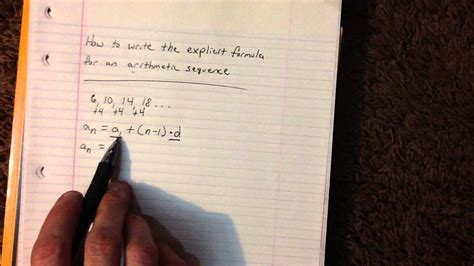 How to write the explicit formula
for an arithmatic sequence
6, 10, 14, 18 ...
+4 +4 +4
aₙ = a₁ + (n-1) · d
aₙ =